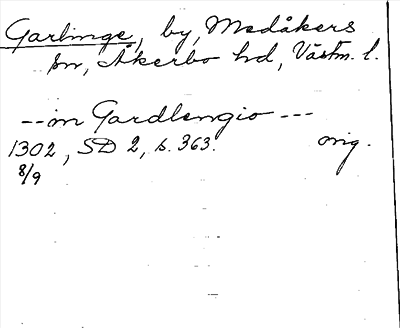 Garlinge, by, Medåkers
sn, Åkerbo hd, Västm. l.
-- in Gardlengio ---
1302, SD 2, s. 363. orig.
8/9